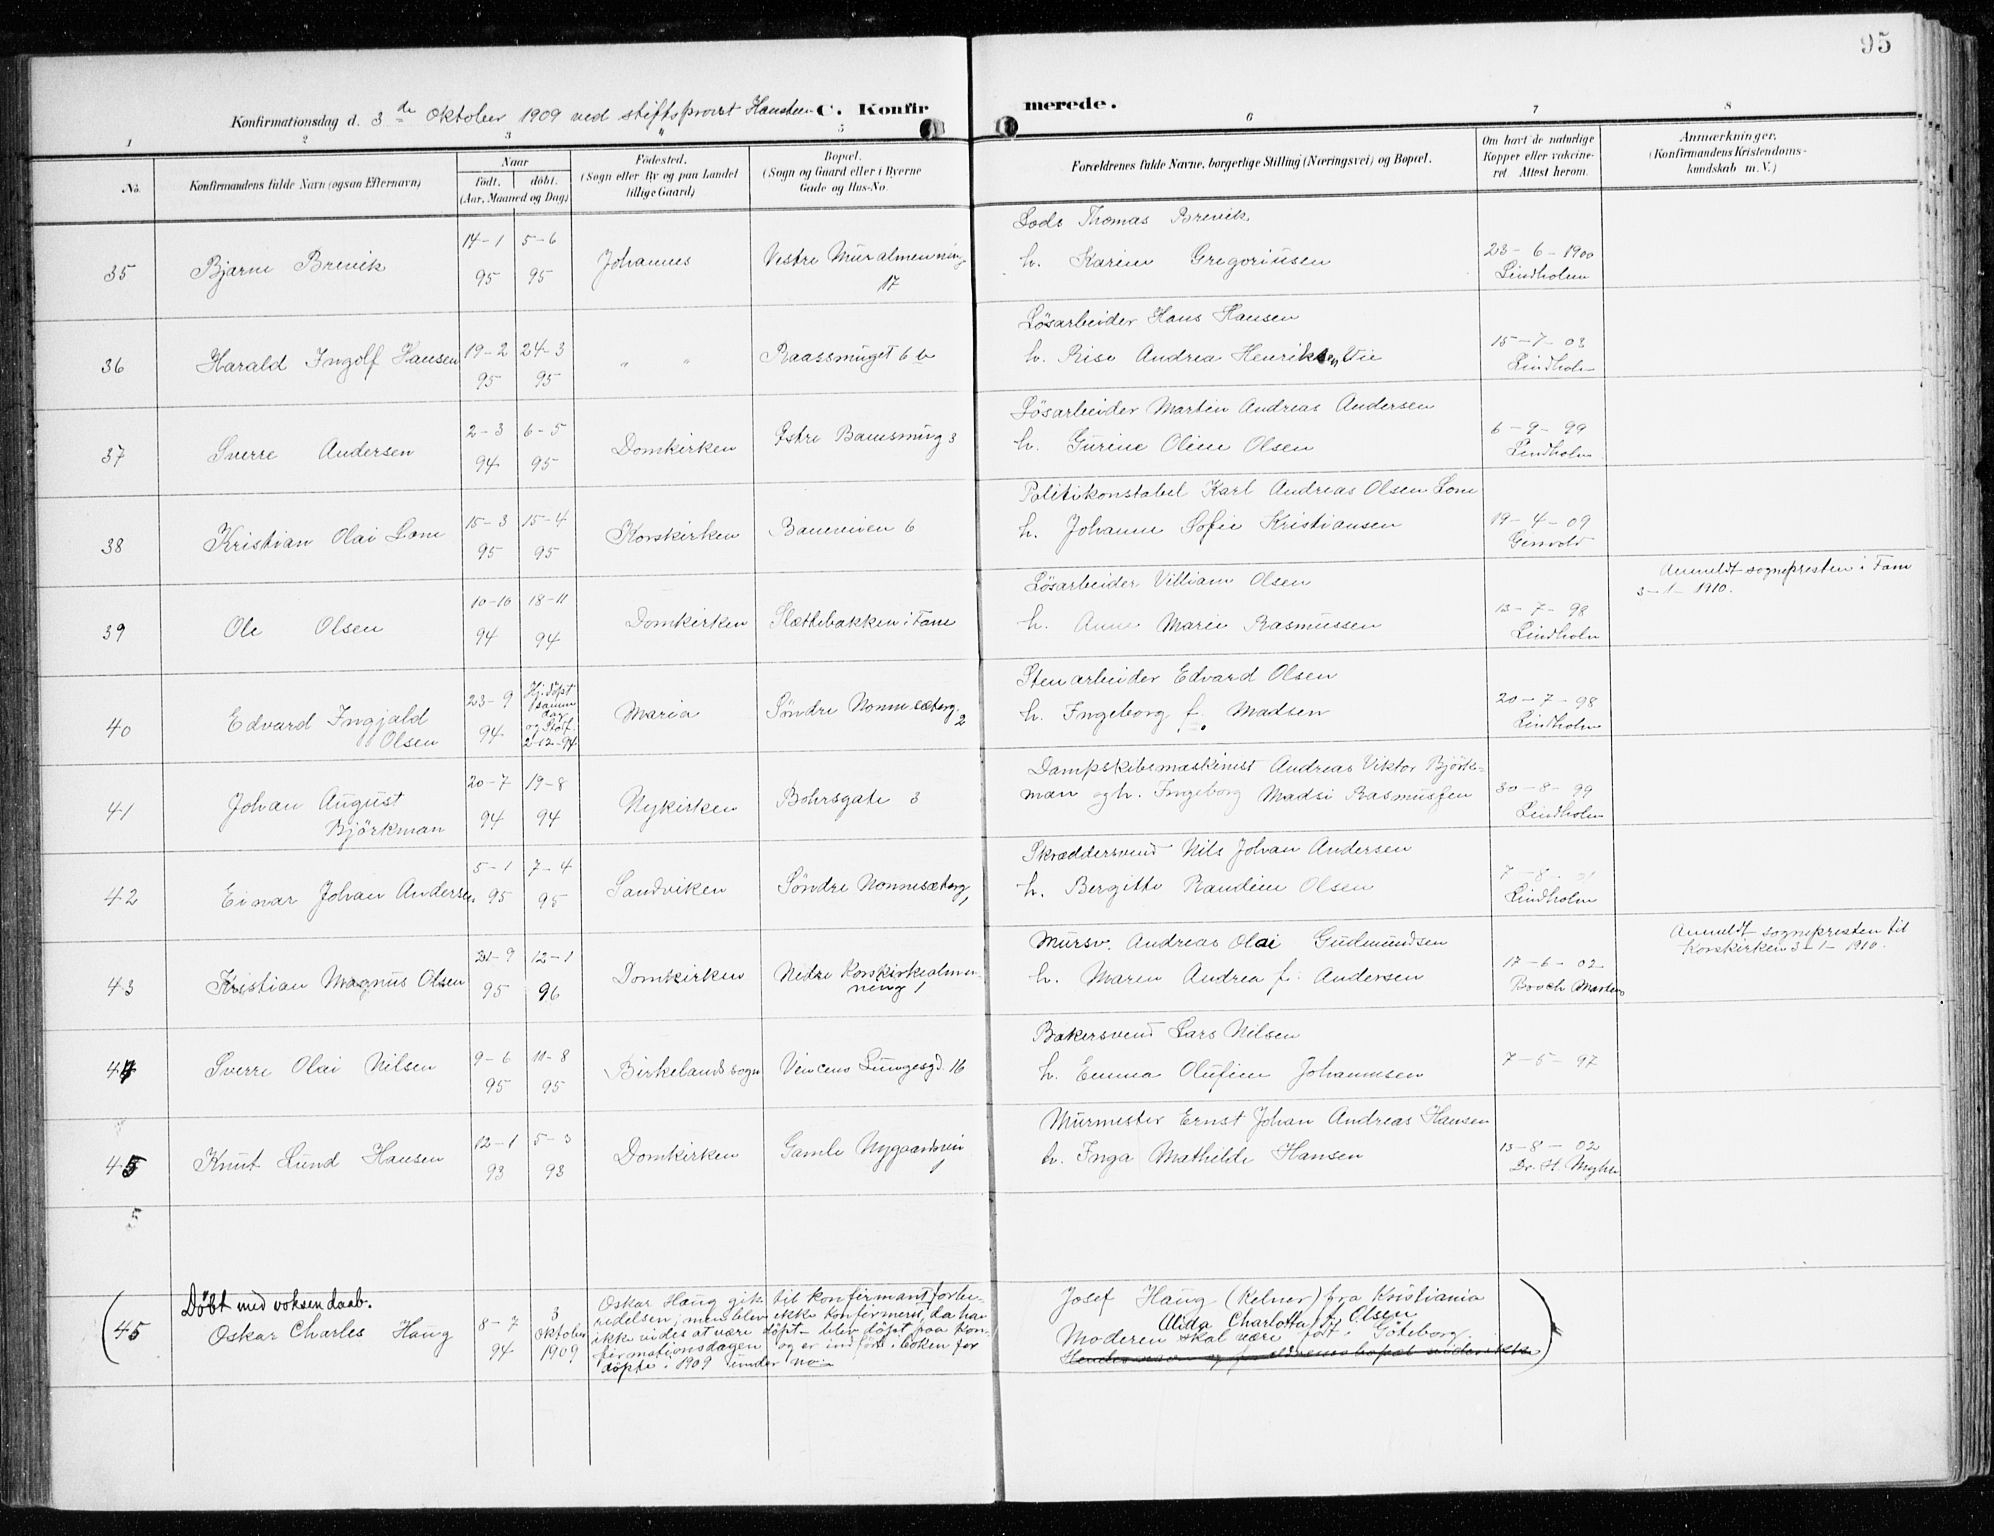 95
Konfirmationsdag d. 3de Oktober 1909 ved stiftsprovst Hansteen C. Konfirmerede.
1 2 3 4 5 6 7 8
No. Konfirmandens fulde Navn (ogsaa Efternavn) Naar født. døbt. (Aar, Maaned og Dag) Fødested. (Sogn eller By og paa Landet tillige Gaard) Bopæl. (Sogn og Gaard eller i Byerne Gade og Hus-No. Forældrenes fulde Navne, borgerlige Stilling (Næringsvei) og Bopæl. Om havt de naturlige Kopper eller vakcineret. Attest herom. Anmærkninger. (Konfirmandens Kristendomskundskab m.V.)
35 Bjarne Brevik 14-1 95 5-6 95 Johannes Vestre Muralmenning 17 Lods Thomas Brevik
h. Karine Gregoriusen 23-6-1900 Lindholm
36 Harald Ingolf Hansen 19-2 95 24-3 95 " " Raassmuget 6 b Løsarbeider Hans Hansen
h. Rise Andrea Henriksen Vie 15-7-03 Lindholm
37 Sverre Andersen 2-3 94 6-5 95 Domkirken Østre Bauesmug 3 Løsarbeider Martin Andreas Andersen
h. Gurine Oline Olsen 6-9-99 Lindholm
38 Kristian Olai Lone 15-3 95 15-4 95 Korskirken Baneveien 6 Politikonstabel Karl Andreas Olsen Lone
h. Johanne Sofie Kristiansen 19-4-09
39 Ole Olsen 10-10 94 18-11 94 Domkirken Slettebakken i Fane Løsarbeider Villiam Olsen
h. Anne Marie Rasmussen 13-7-98 Lindholm Anmeldt sognepresten i Fane 3-1-1910.
40 Edvard Ingjald Olsen 23-9 94 Hj. døpt samme dag og Stadf. 2-12-94 Maria Søndre Nonnesæterg. 2 Stenarbeider Edvard Olsen
h. Ingeborg f. Madsen 20-7-98 Lindholm
41 Johan August Björkman 20-7 94 19-8 94 Nykirken Bohrsgate 3 Dampskibsmaskinist Andreas Viktor Björkman
og h. Ingeborg Madsi Rasmussen 30-8-99 Lindholm
42 Einar Johan Andersen 5-1 95 7-4 95 Sandviken Søndre Nonnesæterg 1 Skræddersvend Nils Johan Andersen
h. Bergitte Randine Olsen 7-8-01 Lindholm
43 Kristian Magnus Olsen 21-9 95 12-1 96 Domkirken Nedre Korskirkealmenning 1 Mursv. Andreas Olai Gudmundsen
h. Maren Andrea f. Andersen 17-6-02 Booch Martens Anmeldt sognepresten til Korskirken 3-1-1910.
44 Sverre Olai Nilsen 9-6 95 11-8 95 Birkelands sogn Vincens Lungesgd. 16 Bakersvend Lars Nilsen
h. Emma Olufine Johannesen 7-5-97
45 Knut Lund Hansen 12-1 93 5-3 93 Domkirken Gamle Nygaardsvei 1 Murmester Ernst Johan Andreas Hansen
h. Inga Mathilde Hansen 13-8-02 Dr. H. Myhre
(45 Døbt med voksendaab.
Oskar Charles Haug 8-7 94 3 Oktober 1909
Oskar Haug gik til konfirmantforberedelsen, men blev ikke konfirmeret, da han
ikke vides at være døpt - blev døpt paa konfirmationsdagen og er indført i boken for
døpte i 1909 under no:
Josef Haug (Kelner) fra Kristiania
Alida Charlotta f. Olsen
Moderen skal være født i Göteborg.)